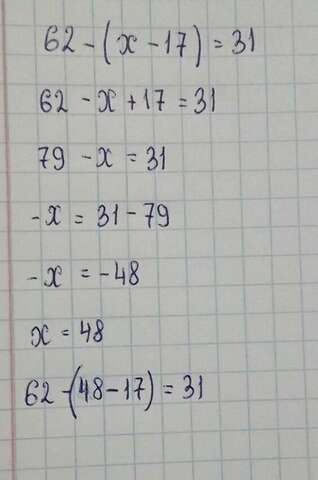 62 - (x - 17) = 31
62 - x + 17 = 31
79 - x = 31
-x = 31 - 79
-x = -48
x = 48
62 - (48 - 17) = 31